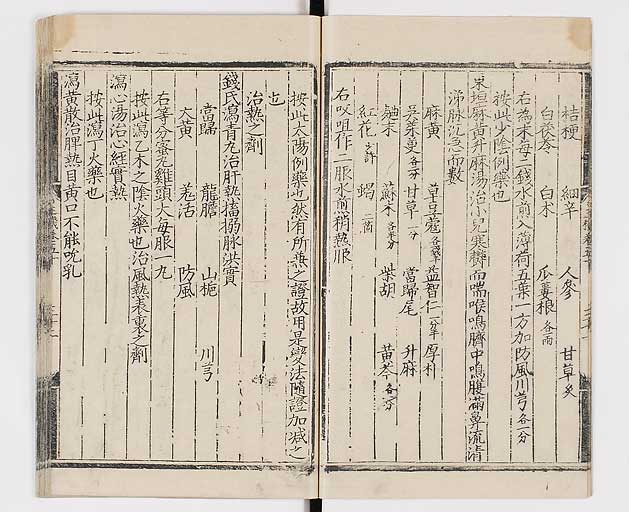 桔梗 細辛 人參 甘草炙
白茯苓 白朮 瓜蔞根各一兩
右為末每二錢水煎入薄荷五葉一方加防風川芎各一分
按此少陰例藥也
東垣麻黃升麻湯治小兒寒欝而喘喉鳴臍中鳴腹滿鼻流清
涕脉沉急而數
麻黃 草豆蔲 益智仁 厚朴
吳茱萸 甘草一分 當歸尾 升麻
麯末 蘇木 柴胡 黃芩各一分
紅花少許 蝎二箇
右㕮咀作二服水煎稍熱服
按此太陽例藥也然有所兼之證故用是變法隨證加減之
也
治熱之劑
錢氏瀉青丸治肝熱搐搦脉洪實
當歸 龍膽 山梔 川芎
大黃 羌活 防風
右等分蜜丸雞頭大每服一丸
按此瀉乙木之陰火藥也治風熱表裏之劑
瀉心湯治心經實熱
按此瀉丁火藥也
瀉黃散治脾熱目黃口不能吮乳